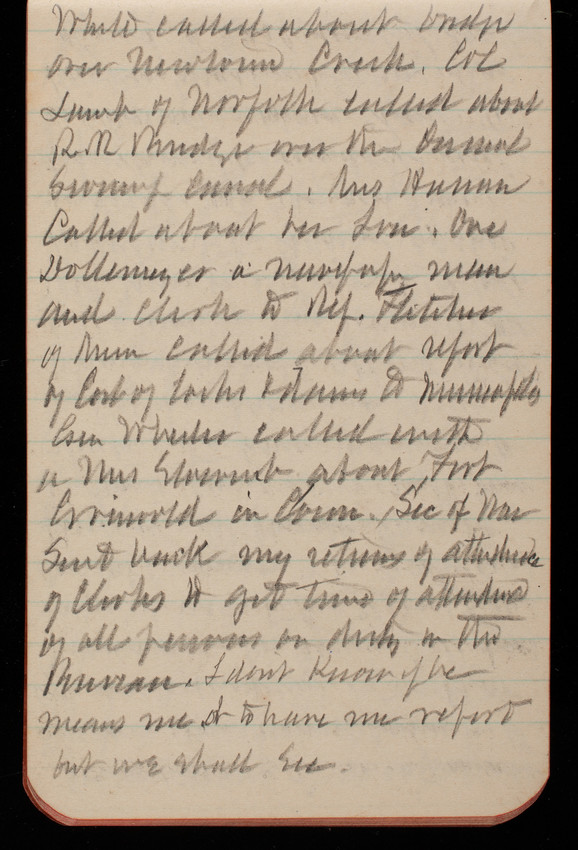 called about bridge
over Newtown Creek. Col
Lamb of Norfolk called about
R.R Bridge over the Dismal
Swamp Canal. Mrs
Called about her Son. One
a newspaper man
and Clerk to Rep. Fletcher
of Minn called about report
of Cost of Locks & dams to Minneapolis
Gen Wheeler called with
a Mrs about Fort
Griswold in Conn. Sec of War
Sent back my returns of attendance
of Clerks to get time of attendance
of all persons on duty in this
Bureau. I dont Know if he
means me or to have me report
but we shall See.